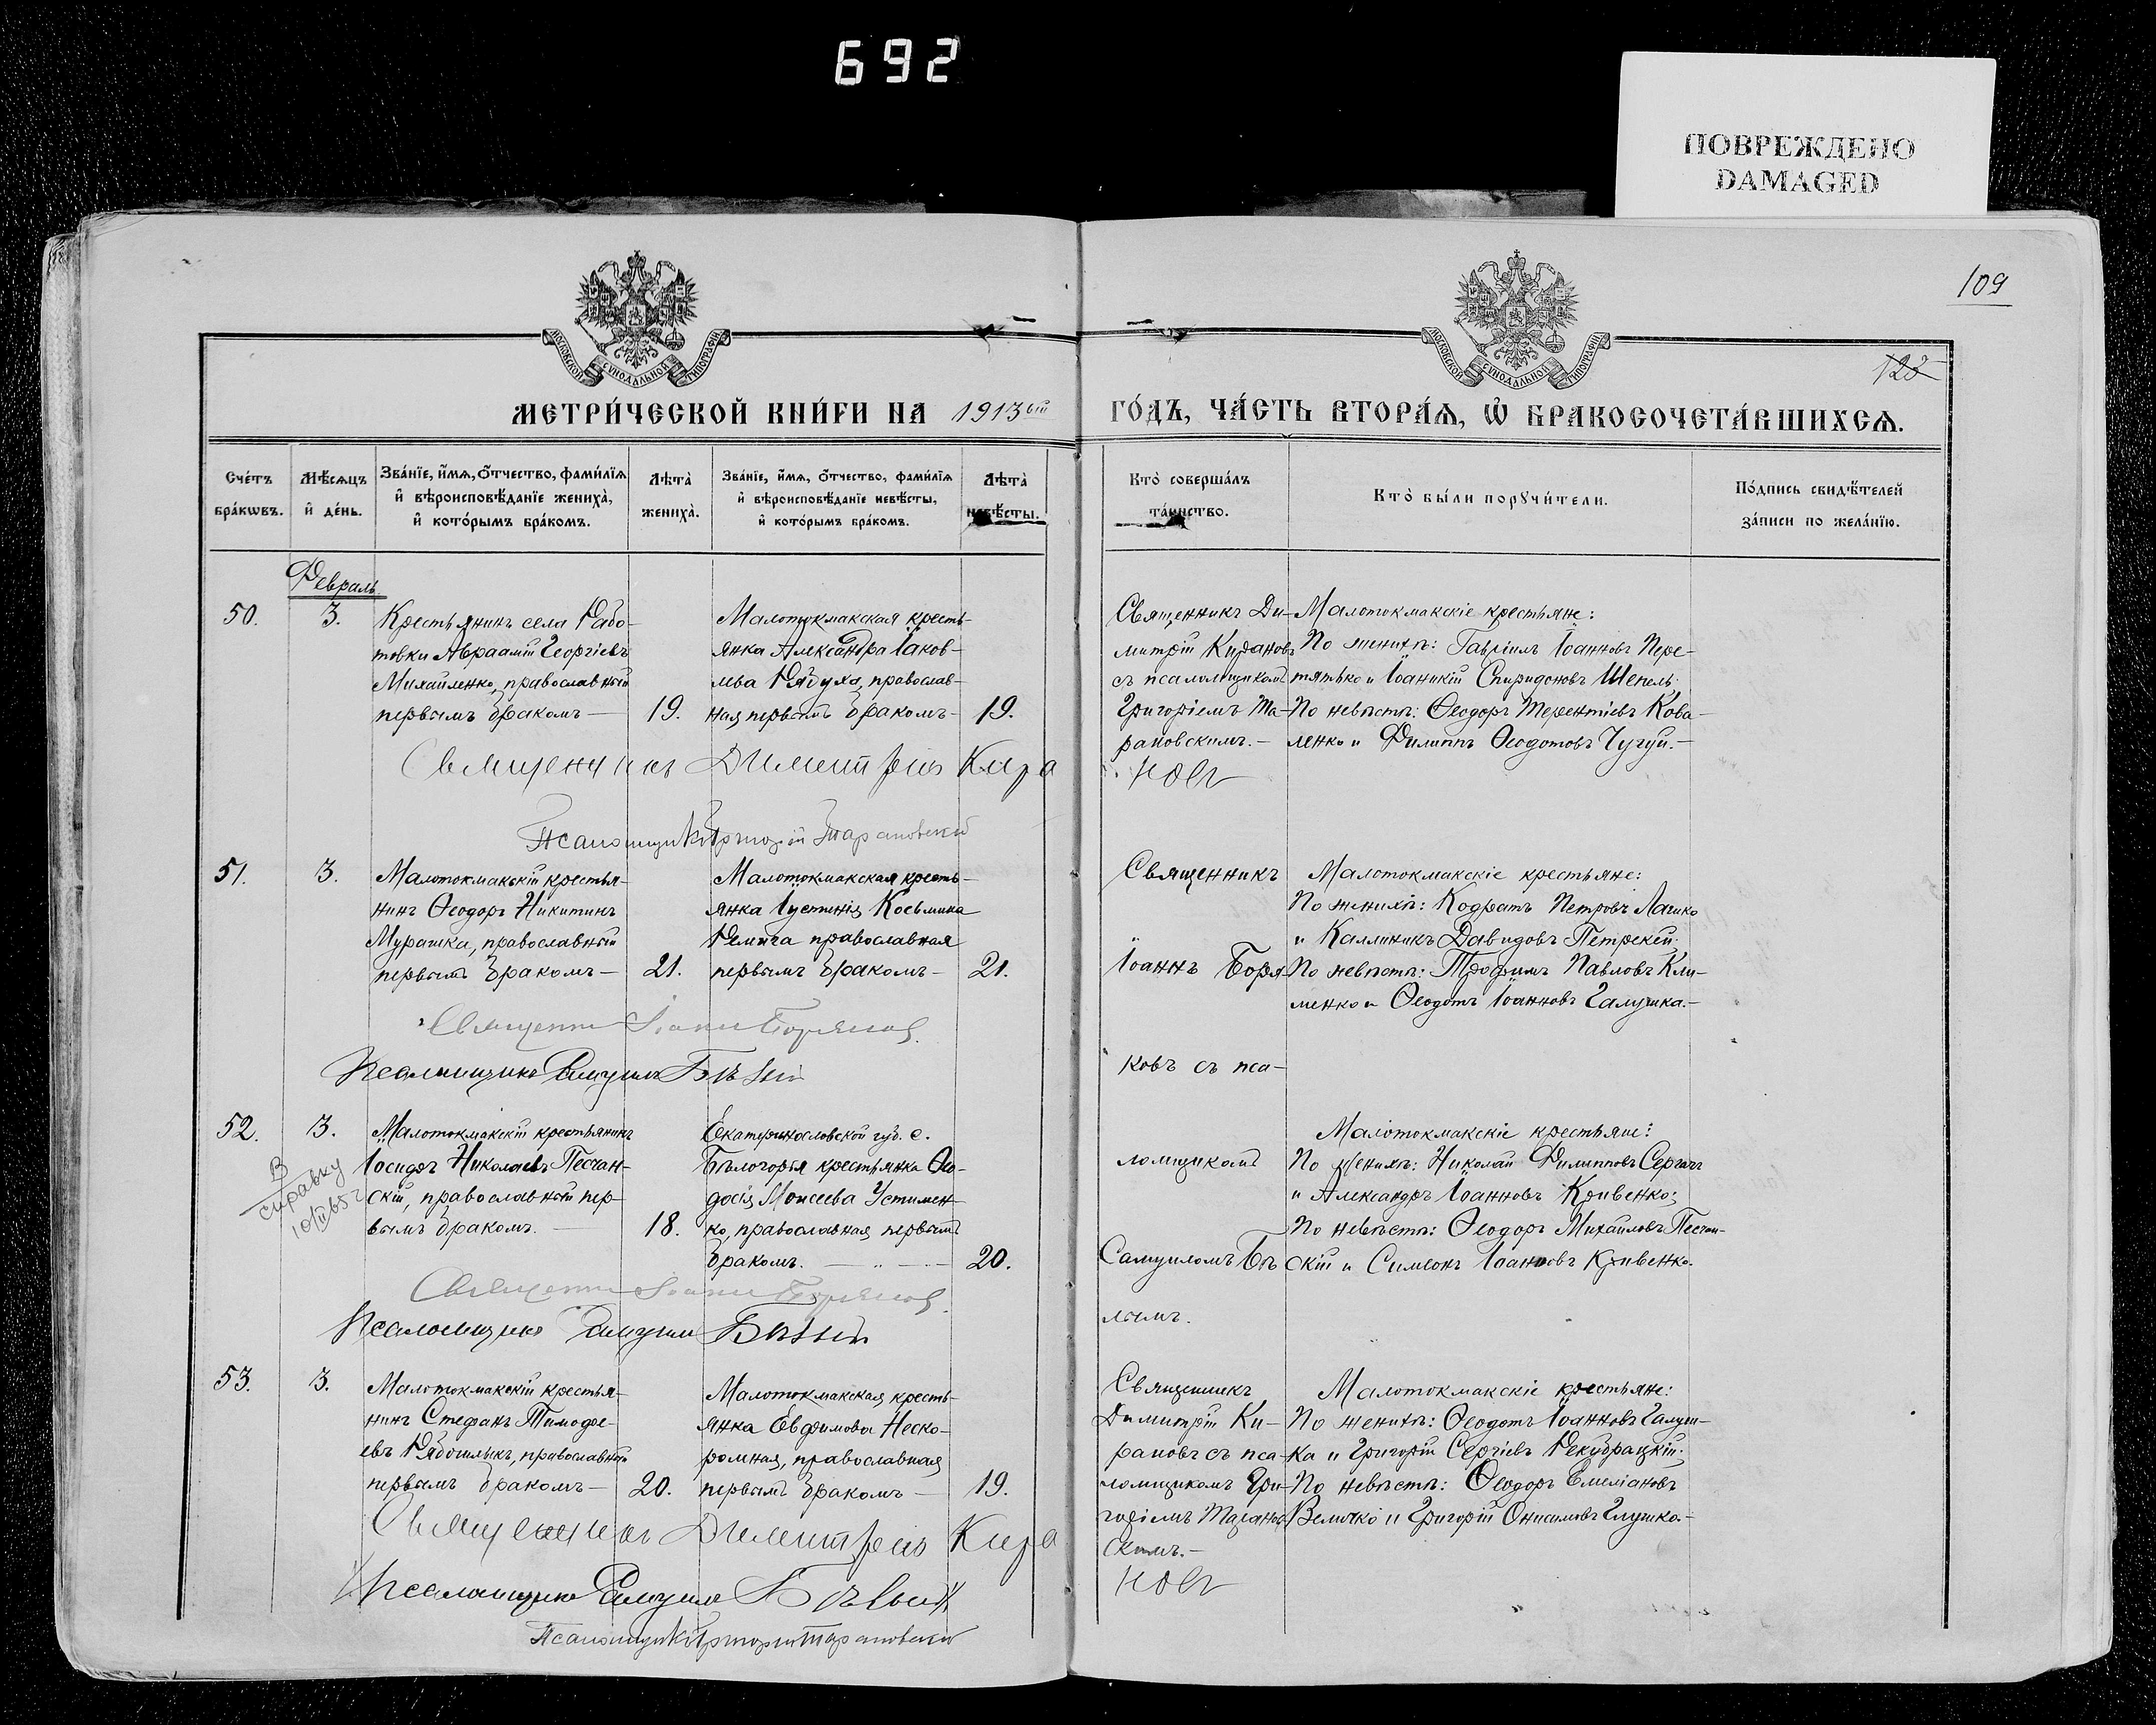 692
ПОВРЕЖДЕНО
DAMAGED
109
123
МОСКОВСКОЙ СѴНОДАЛЬНОЙ ТИПОГРАФІИ
МОСКОВСКОЙ СѴНОДАЛЬНОЙ ТИПОГРАФІИ
МЕТРИ́ЧЕСКОЙ КНИ́ГИ НА 1913ый
ГО́ДЪ, ЧА́СТЬ ВТОРА́Я, Ѡ҆ БРАКОСОЧЕТА́ВШИХСЯ.
Сче́тъ бра́кѡвъ.
Мѣ́сяцъ и҆ де́нь.
Зва́нїе, и҆́мя, ѻ҆́тчество, фами́лїя
и҆ вѣроисповѣ́данїе жениха̀,
и҆ кото́рымъ бра́комъ.
Лѣта̀ жениха̀.
Зва́нїе, и҆́мя, ѻ҆́тчество, фами́лїя
и҆ вѣроисповѣ́данїе невѣ́сты,
и҆ кото́рымъ бра́комъ.
Лѣта̀ невѣ́сты.
Кто̀ соверша́лъ
та́инство.
Кто̀ бы́ли порꙋчи́тели.
По́дпись свидѣ́телей
за́писи по жела́нїю.
Февраль
50.
3.
Крестьянинъ села Рабо-
товки Авраамій Георгіевъ
Михайленко, православный
первымъ бракомъ—
19.
Малотокмакская кресть-
янка Александра Іаков-
лева Рябуха, православ-
ная первымъ бракомъ—
19.
Священникъ Ди-
митрій Кирановъ
съ псаломщикомъ
Григоріемъ Та-
рановскимъ.—
Малотокмакскіе крестьяне:
По женихѣ: Гавріилъ Іоанновъ Пере-
тятько и Іоаникій Спиридоновъ Шепель;
По невѣстѣ: Ѳеодоръ Терентіевъ Кова-
ленко и Филиппъ Ѳеодотовъ Чугуй.—
Священникъ Димитрій Кира
новъ
Псаломщикъ Григорій Тарановскій
51.
3.
Малотокмакскій крестья-
нинъ Ѳеодоръ Никитинъ
Мурашка, православный
первымъ бракомъ—
21.
Малотокмакская кресть-
янка Іустинія Косьмина
Ремига православная
первымъ бракомъ—
21.
Священникъ
Іоаннъ Боря
ковъ съ пса-
ломщикомъ
Самуиломъ Бѣ
лымъ.
Малотокмакскіе крестьяне:
По женихѣ: Кодратъ Петровъ Лачко
и Каллиникъ Давидовъ Петрскій;
По невѣстѣ: Трофимъ Павловъ Кли-
менко и Ѳеодотъ Іоанновъ Галушка.—
Священникъ Іоаннъ Боряковъ.
Псаломщикъ Самуилъ Бѣлый
52.
3.
В
справку
10/II 65г
Малотокмакскій крестьянинъ
Іосидоръ Николаевъ Песчан-
скій, православный пер-
вымъ бракомъ. —
18.
Екатеринославской губ. с.
Бѣлогорья крестьянка Ѳео-
досія Моисеева Устимен-
ко, православная первымъ
бракомъ. — „ —
20.
Малотокмакскіе крестьяне:
По женихѣ: Николай Филипповъ Сергачъ
и Александръ Іоанновъ Кривенко;
По невѣстѣ: Ѳеодоръ Михайловъ Песчан-
скій и Симеонъ Іоанновъ Кривенко.
Священникъ Іоаннъ Боряковъ.
Псаломщикъ Самуилъ Бѣлый
53.
3.
Малотокмакскій крестья-
нинъ Стефанъ Тимофе-
евъ Рябошлыкъ, православный
первымъ бракомъ—
20.
Малотокмакская кресть-
янка Евфимова Неско-
ромная, православная
первымъ бракомъ —
19.
Священникъ
Димитрій Ки-
рановъ съ пса-
ломщикомъ Гри-
горіемъ Таранов
скимъ.—
Малотокмакскіе крестьяне:
По женихѣ: Ѳеодотъ Іоанновъ Галуш-
ка и Григорій Сергіевъ Рекубрацкій;
По невѣстѣ: Ѳеодоръ Емеліановъ
Величко и Григорій Онисимовъ Глушко.—
Священникъ Димитрій Кира
новъ
Псаломщикъ Самуилъ Бѣлый
Псаломщикъ Григорій Тарановскій